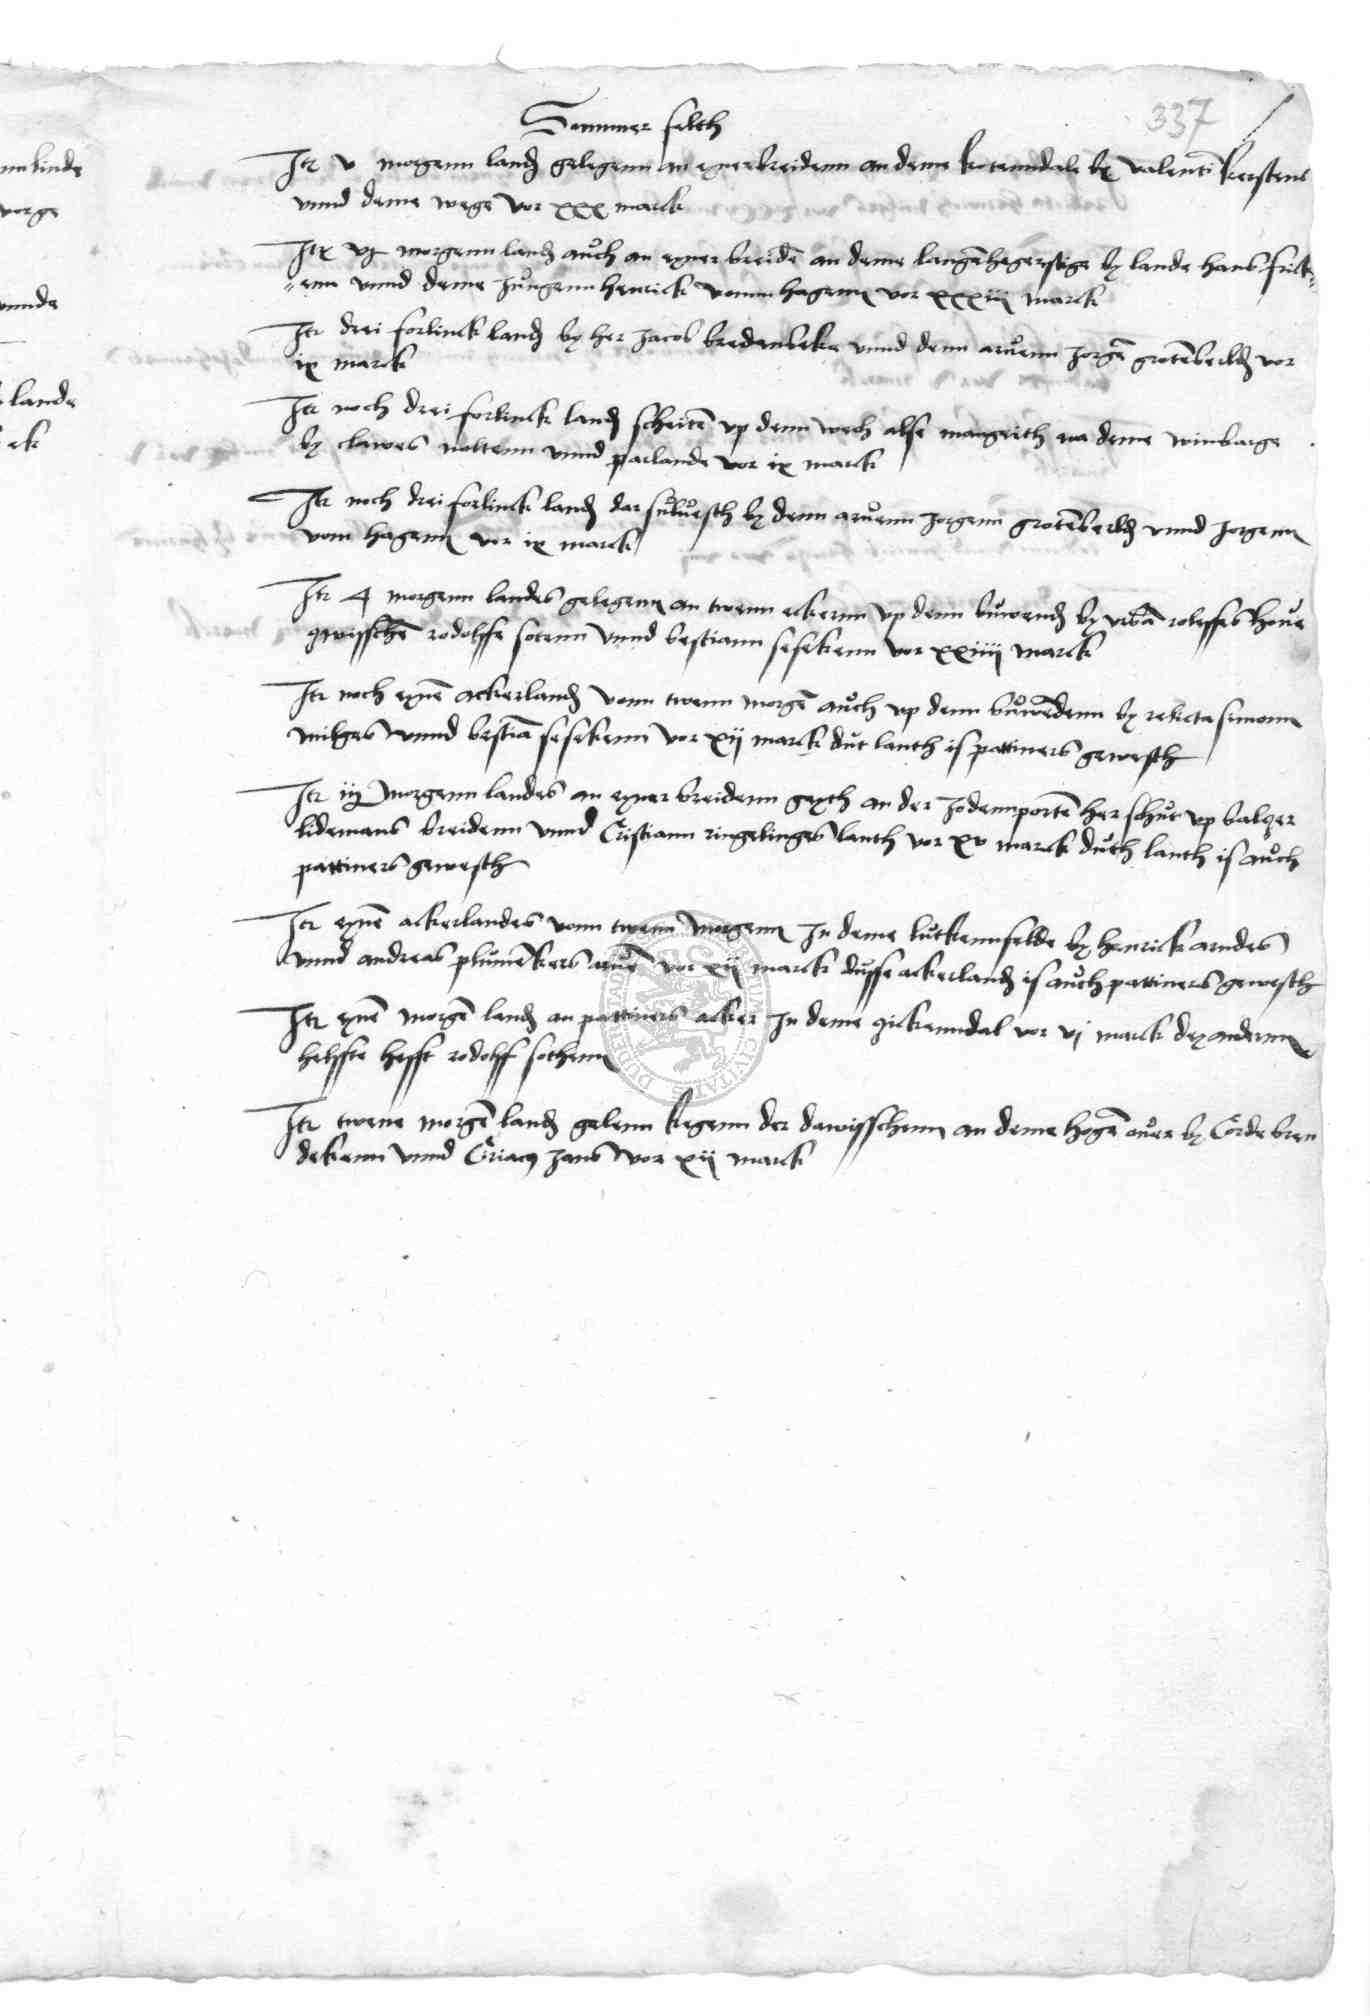 337
Sommer felth
Itē v morgenn landꝭ gelegenn an eynerbreidenn an deme ketenndale by valentī kerstens
vnnd deme wege vor xxx marck
Itē vj morgenn landꝭ auͦch an eyner breidē an deme langēhegerstige by lande hans frick
enn vnnd deme Juͦngenn henrick vonn hagenn vor xxxiij marck
Itē drei forlinck landꝭ by her Jacob bredenbeke vnnd denn aruͦenn Jorgē grotēberchꝭ vor
ix marck
Itē noch drei forlinck landꝭ scheitē vp denn wech alse mangeith na deme winbarge
by clawes nottenn vnnd parlande vor ix marck
Itē noch drei forlinck landꝭ dar suͦluͦesth by denn aruͦenn Jorgenn grotēberchꝭ vnnd Jorgenn
vom hagenn vor ix marck
Itē 4 morgenn landes gelegenn an twenn eckernn vp denn buͦwendꝭ by vrbā roleffes houͦe
zwisschē rodolffe sotenn vnnd bestiann sesekenn vor xxiiij marck
Itē noch eynē ackerlandꝭ vonn twenn morgē auͦch vp denn buͦwēdenn by relicta simonn
milges vnnd bestiā sesekenn vor xij marck duͦt lanth is pattiners gewesth
Itē iij morgenn landes an eyner breidenn geyth an der Jodennportē her schuͦt vp balzer
lidemans breidenn vnnd Cristiann ringelinges lanth vor xv marck duͦth lanth is auͦch
pattiners gewesth
Itē eynē ackerlandes vonn twenn morgenn In deme luͦtkennfelde by henrick arndes
vnnd andreas pluͦmēkers aruͦē vor xij marck duͦsse ackerlandꝭ is auͦch pattiners gewesth
Itē eynē morgē landꝭ an pattiners acker In deme zickenndal vor vj marck dey andernn
helffte hefft rodolff sothenn
Itē twene morgē landꝭ gelenn kegenn der dawisschenn an deme hogē auͦer by Corde bren
dekenn vnnd Ciriacꝰ Jans vor xij marck
nn kinde
vorge
vnnde
lande
ek
CIVITATIS